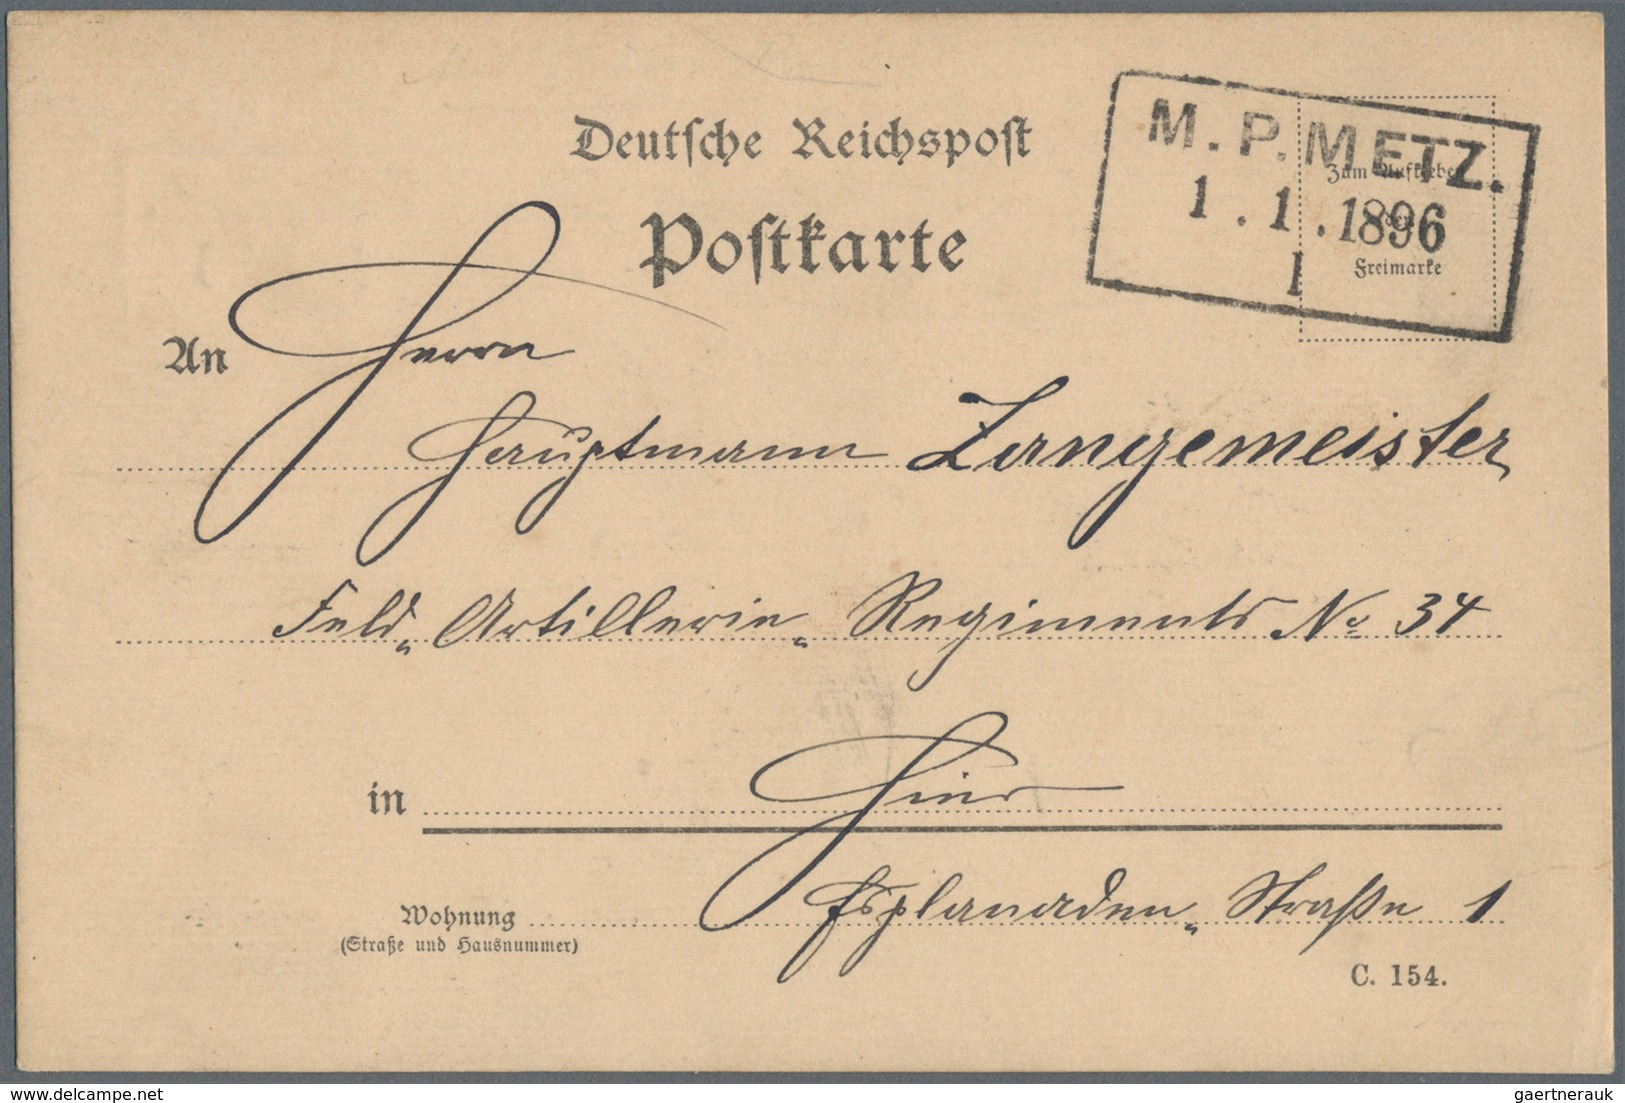 Deutsche Reichspost
Postkarte
M. P. METZ.
1. 1. 1896
1
Zum Aufkleben
der
Freimarke
An Herrn
Hauptmann Zangemeister,
Feld-Artillerie-Regiments No 34
in Hier
Wohnung Esplanaden-Straße 1
(Straße und Hausnummer)
C. 154.
delcampe.net
gaertnerauk